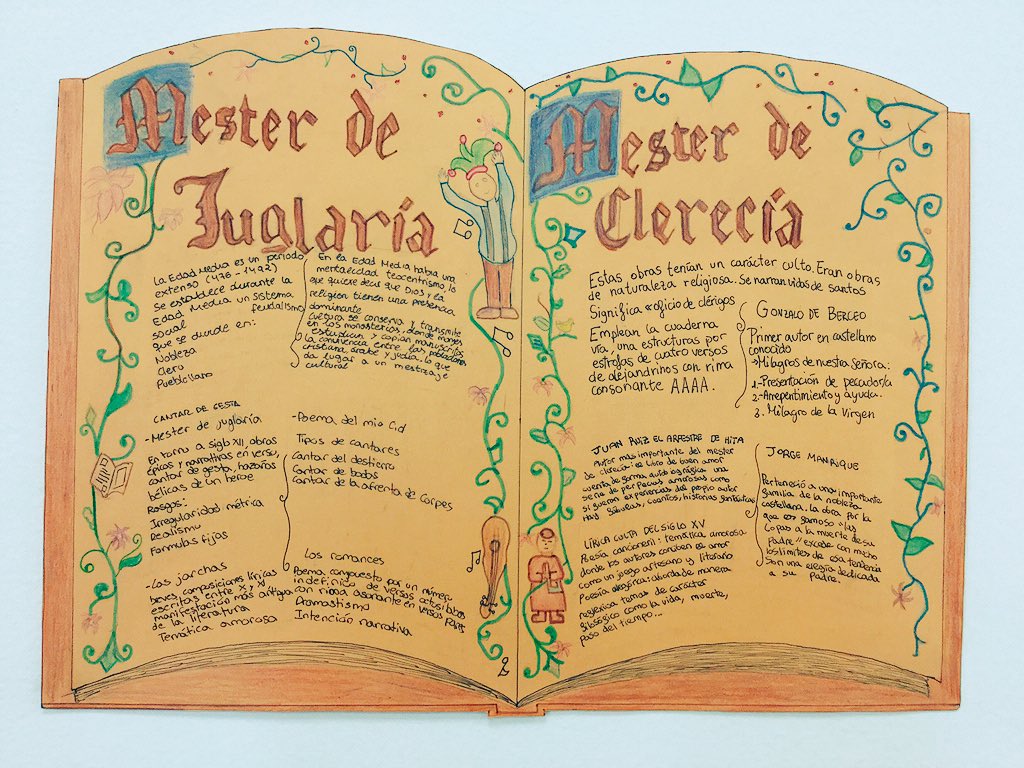 Mester de
Juglaría
La Edad Media es un periodo
extenso (476-1492)
Se establece durante la
Edad Media un sistema
social feudalismo
que se divide en:
Nobleza
Clero
Pueblo llano
En la Edad Media había una
mentalidad teocentrismo, lo
que quiere decir que Dios y la
religión tienen una presencia
dominante
Cultura se conserva y transmite
en los monasterios, donde monjes
estudian y copian manuscritos
la convivencia entre las pobladores
cristiana, árabe y judía, lo que
da lugar a un mestizaje
cultural
CANTAR DE GESTA
-Mester de juglaría
En torno a siglo XII, obras
épicas y narrativas en verso,
cantar de gesta, hazañas
bélicas de un héroe
Rasgos:
Irregularidad métrica
Realismo
Formulas fijas
-Poema del mio Cid
Tipos de cantares
Cantar del destierro
Cantar de bodas
Cantar de la afrenta de Corpes
-Las jarchas
breves composiciones líricas
escritas entre X y XI
manifestación más antigua
de la literatura
Temática amorosa
Los romances
Poema compuesto por un número
indefinido de versos octosílabos
con rima asonante en versos pares
Dramastismo
Intención narrativa
Mester de
Clerecía
Estas obras tenían un carácter culto. Eran obras
de naturaleza religiosa. Se narran vidas de santos
Significa oficio de clérigos
Emplean la cuaderna
vía, una estructuras por
estrofas de cuatro versos
de alejandrinos con rima
consonante AAAA.
GONZALO DE BERCEO
Primer autor en castellano
conocido
Milagros de nuestra señora:
1.-Presentación de pecador/a
2.-Arrepentimiento y ayuda.
3. Milagro de la Virgen
JUAN RUIZ EL ARPESTRE DE HITA
Autor más importante del mester
de clerecía: el libro de buen amor
cuenta de forma autobiográfica una
serie de peripecias amorosas como
si fueran experiencias del propio autor
Hay fábulas, cuentos, historias fantásticas
LÍRICA CULTA DEL SIGLO XV
Poesía cancioneril: temática amorosa
donde los autores conciben el amor
como un juego artesano y literario
Poesía alegórica: aborda de manera
reflexiva temas de carácter
filosófico como la vida, muerte,
paso del tiempo...
JORGE MANRIQUE
Perteneció a una importante
familia de la nobleza
castellana, la obra por la
que es famoso "las
Coplas a la muerte de su
Padre" excede con mucho
los límites de esa tendencia
Son una elegía dedicada
a su Padre.